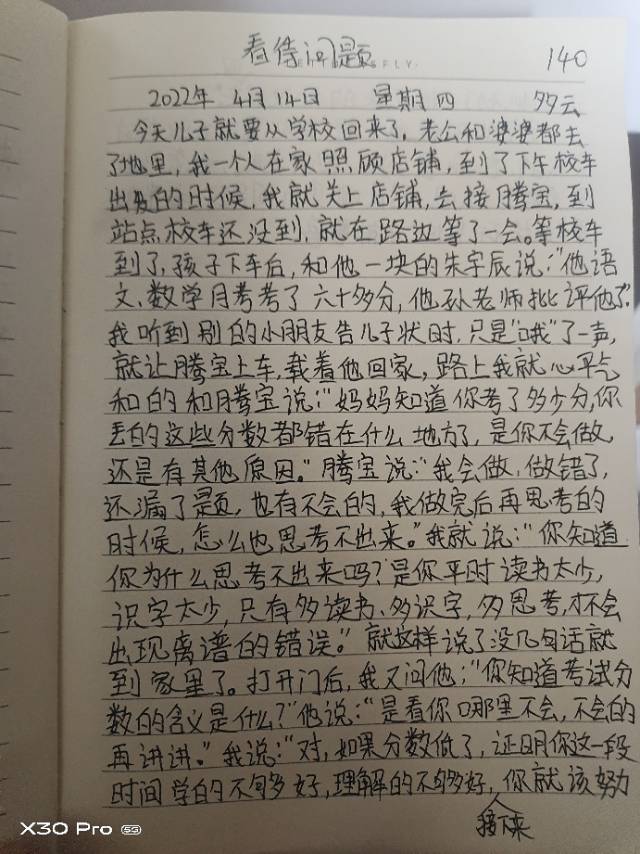 看待问题
140
2022年 4月14日 星期四 多云
今天儿子就要从学校回来了，老公和婆婆都去
了地里，我一个人在家照顾店铺，到了下午校车
出发的时候，我就关上店铺，去接腾宝，到
站点校车还没到，就在路边等了一会。等校车
到了，孩子下车后，和他一块的朱宇辰说："他语
文、数学月考考了六十多分，他孙老师批评他了"。
我听到别的小朋友告儿子状时，只是"哦"了一声，
就让腾宝上车，载着他回家，路上我就心平气
和的和腾宝说："妈妈知道你考了多少分，你
丢的这些分数都错在什么地方了，是你不会做，
还是有其他原因。"腾宝说："我会做，做错了，
还漏了题，也有不会的，我做完后再思考的
时候，怎么也思考不出来。"我就说："你知道
你为什么思考不出来吗？是你平时读书太少，
识字太少，只有多读书、多识字，多思考，才不会
出现离谱的错误。"就这样说了没几句话就
到家里了。打开门后，我又问他："你知道考试分
数的含义是什么？"他说："是看你哪里不会，不会的
再讲讲。"我说："对，如果分数低了，证明你这一段
时间学的不够多好，理解的不够多好，你就该努力
接下来
X30 Pro 5G